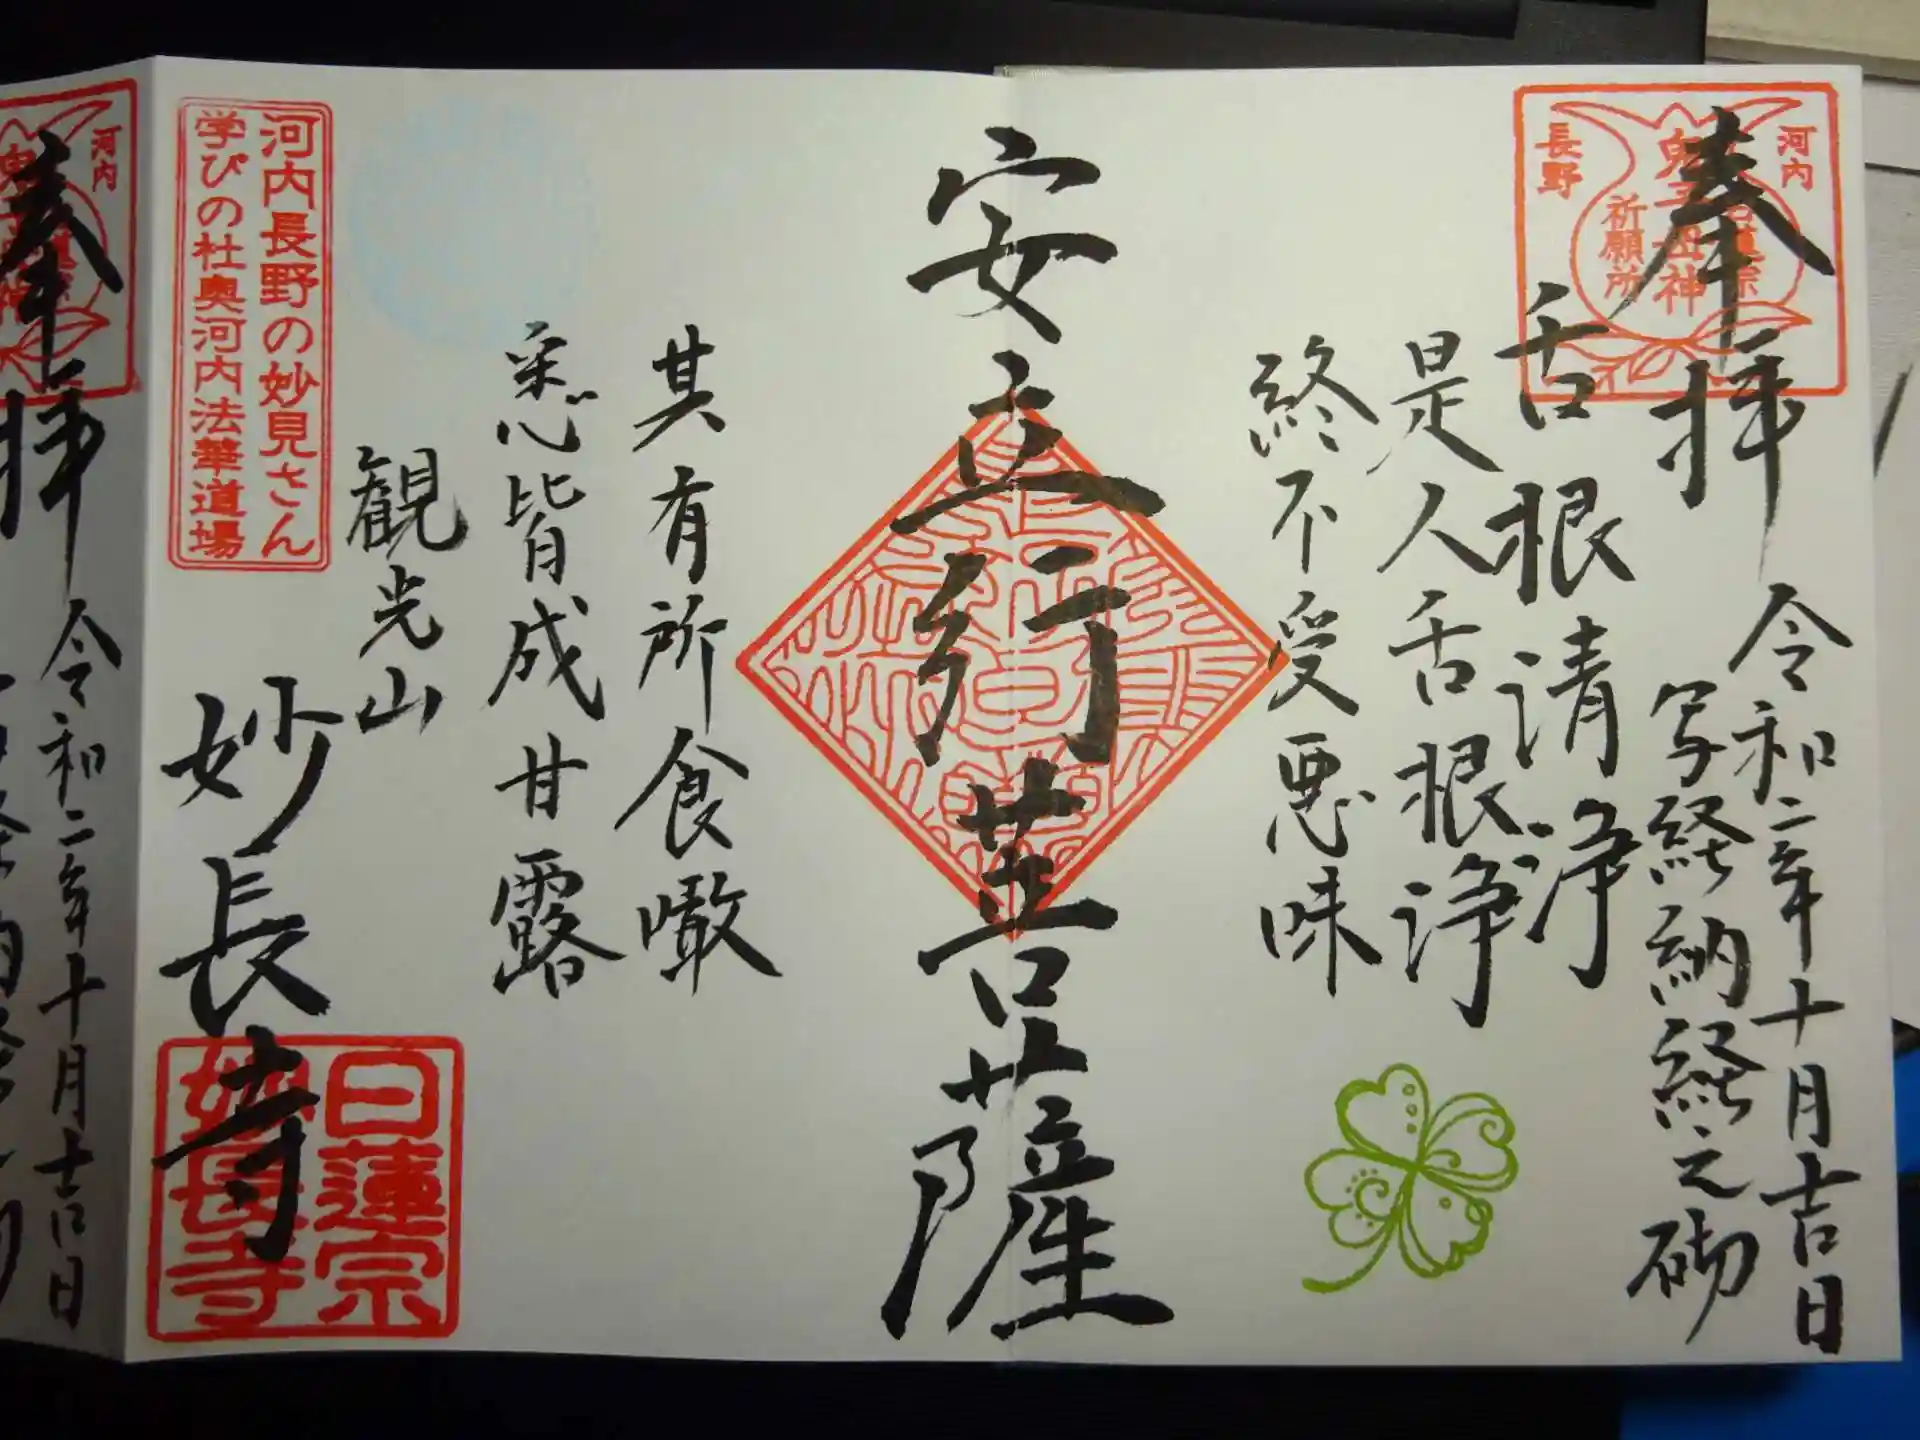 奉拝
令和二年十月吉日
写経納経之砌
河内
長野
鬼子母神
祈願所
舌根清浄
是人舌根浄
終不受悪味
安立行菩薩
其有所食噉
悉皆成甘露
観光山
妙長寺
河内長野の妙見さん
学びの杜奥河内法華道場
日蓮宗
妙長寺
河内
奉拝
令和二年十月吉日